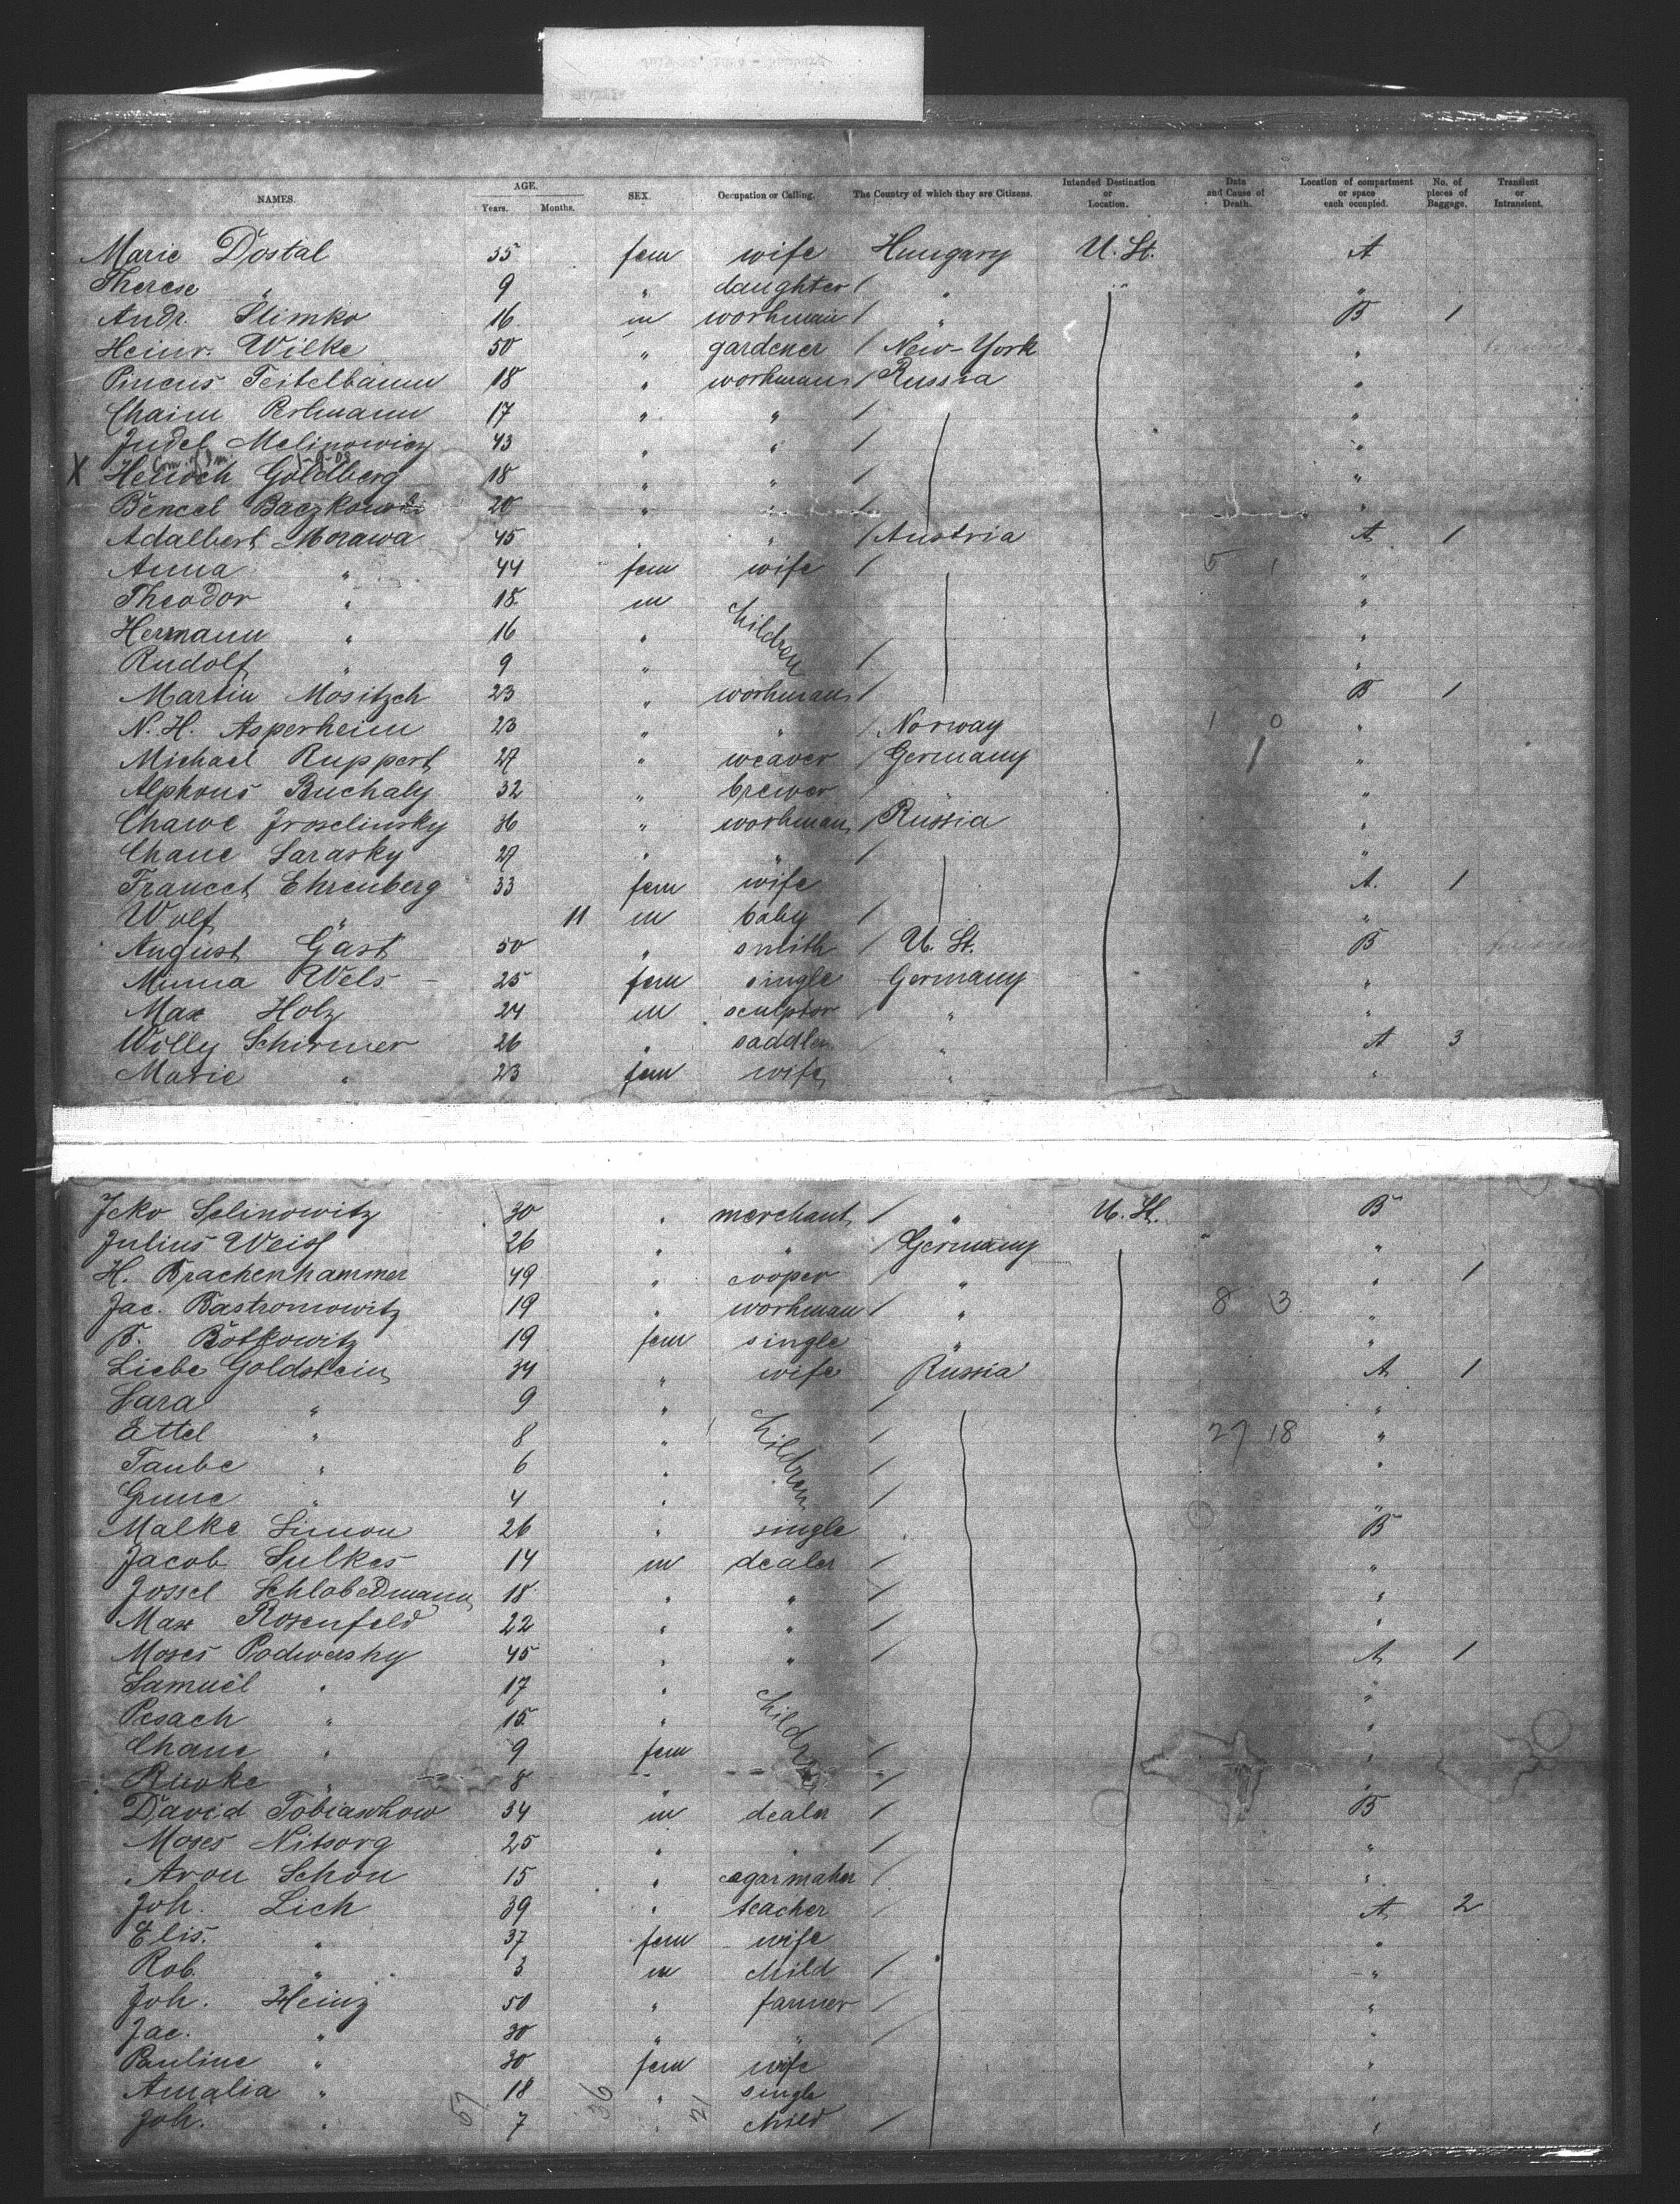 NAMES. AGE. Years. Months. SEX. Occupation or Calling. The Country of which they are Citizens. Intended Destination or Location. Date and Cause of Death. Location of compartment or space each occupied. No. of pieces of Baggage. Transient or Intransient.
Marie Dostal 35 fem wife Hungary U. St. A
Therese " 9 " daughter / " "
Andr. Slimko 16 m workman / " B 1
Heinr. Wilke 50 " gardener / New-York "
Pincus Teitelbaum 18 " workman / Russia "
Chaim Perlmann 17 " " / "
Judel Malinowicz 43 " " / "
X Henoch Goldberg 18 " " / "
Bencel Baczkowski 20 " " / "
Adalbert Morawa 45 " " / Austria A 1
Anna " 44 fem wife / 5 1 "
Theodor " 18 m children "
Hermann " 16 " / "
Rudolf " 9 " / "
Martin Mositzch 23 " workman / B 1
N. H. Asperheim 23 " " / Norway 1 0 "
Michael Ruppert 27 " weaver / Germany / "
Alphons Buchaly 32 " brewer / "
Chawe Jroselinsky 36 " workman / Russia "
Chane Sarasky 27 " " / "
Fraucet Ehrenberg 33 fem wife A. 1
Wolf " 11 m baby / "
August Gast 50 " smith / U. St. B
Minna Wels 25 fem single Germany "
Max Holz 24 m sculptor / " "
Willy Schirmer 26 " saddler / " A 3
Marie " 23 fem wife " "
Jcko Selinowitz 30 " merchant / " U. St. B
Julius Weiss 26 " " / Germany "
H. Brachenhammer 49 " cooper / " " 1
Jac. Bastromowitz 19 " workman / " 8 3 "
B. Botkowitz 19 fem single " "
Liebe Goldstein 34 " wife Russia A 1
Sara " 9 " children / "
Ettel " 8 " / 27 18 "
Taube " 6 " / "
Grune " 4 " / "
Malke Simon 26 " single B
Jacob Sulkes 14 m dealer / "
Jossel Schlobedmann 18 " " / "
Max Rosenfeld 22 " " / "
Moses Podwersky 45 " " / A 1
Samuel " 17 " children "
Pesach " 15 " "
Chane " 9 fem / "
Riwke " 8 " / "
David Tobiaschow 34 m dealer / B
Moses Nitsorg 25 " " / "
Aron Schon 15 " cogarmaker / "
Joh. Lich 39 " teacher / A 2
Elis. " 37 fem wife "
Rob. " 3 m child / "
Joh. Heinz 50 " farmer / "
Jac. " 30 " " / "
Pauline " 30 fem wife "
Amalia " 18 " single "
Joh. " 7 " child / "
57 36 21